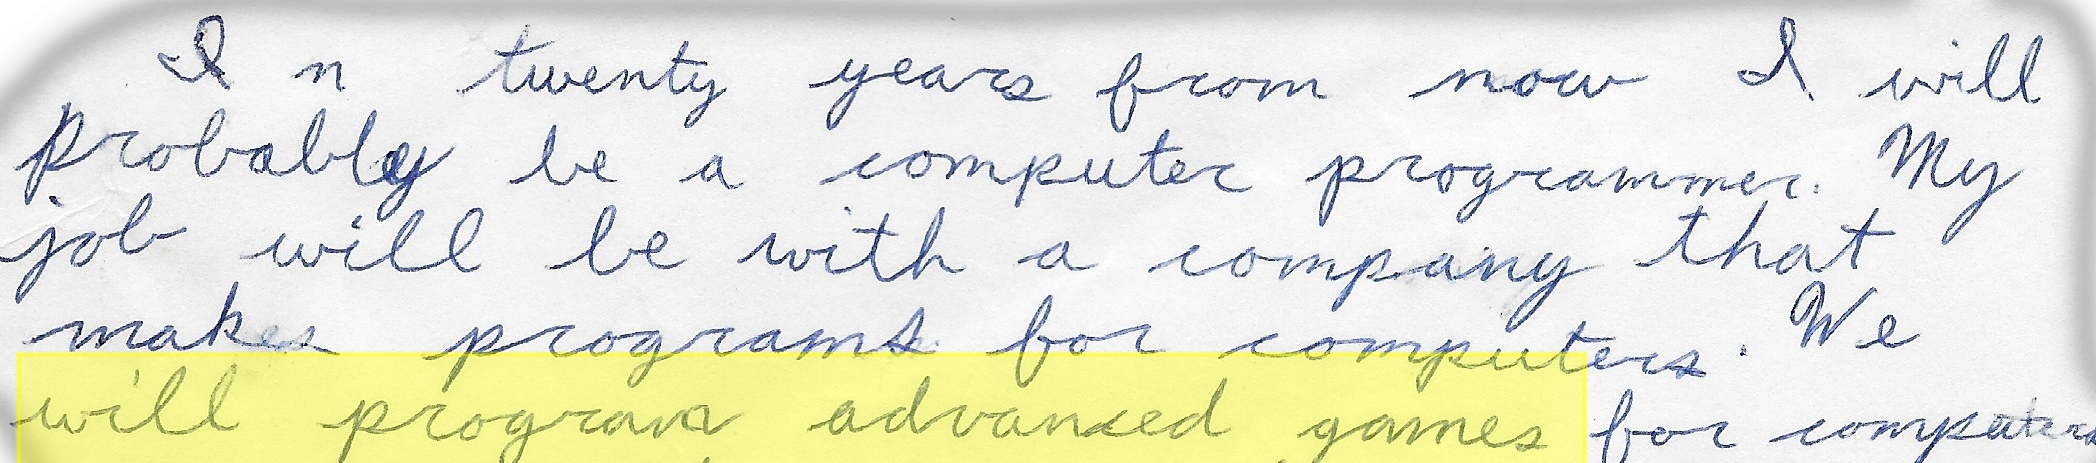 In twenty years from now I will
probably be a computer programmer. My
job will be with a company that
makes programs for computers. We
will program advanced games for computers